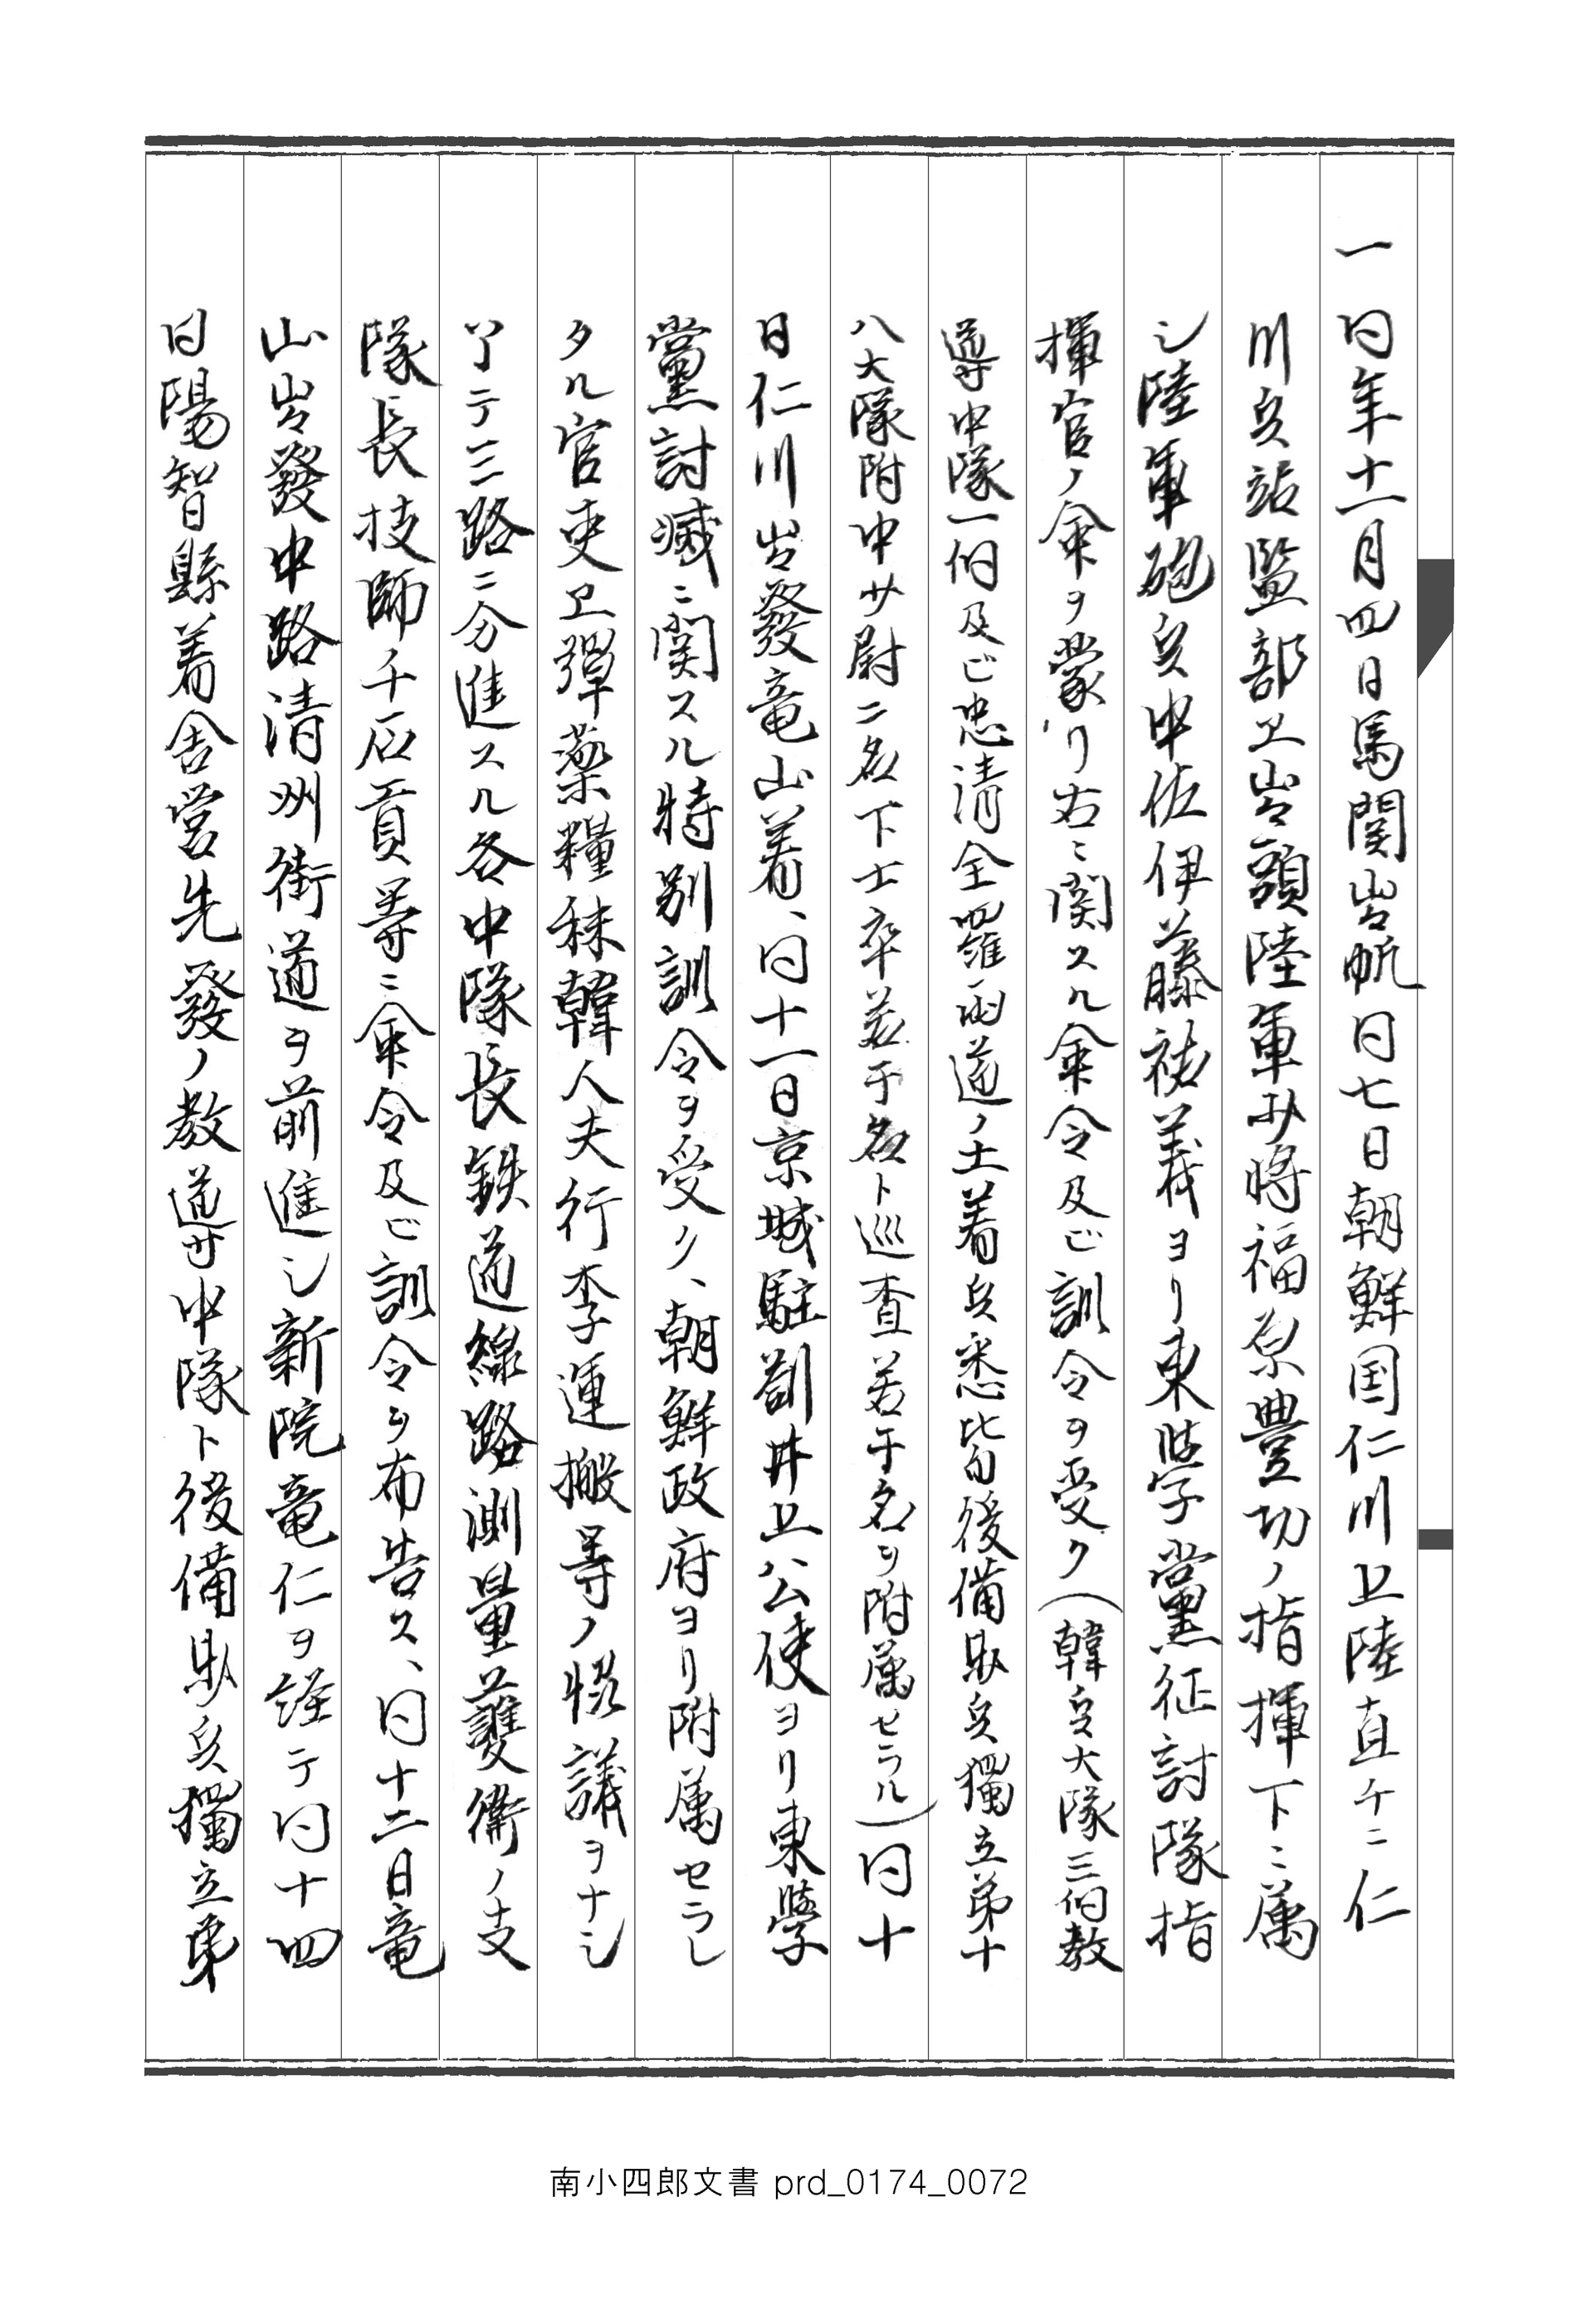 一 同年十一月四日馬関出帆同七日朝鮮国仁川上陸直チニ仁
川兵站監部エ出頭陸軍少将福原豊功ノ指揮下ニ属
シ陸軍砲兵中佐伊藤祐義ヨリ東学黨征討隊指
揮官ノ命ヲ蒙リ右ニ関スル命令及ビ訓令ヲ受ク(韓兵大隊三個教
導中隊一個及ビ忠清全羅両道ノ土着兵悉皆後備歩兵獨立第十
八大隊附中少尉二名下士卒若干名ト巡査若干名ヲ附属セラル)同十
日仁川出發竜山着、同十一日京城駐劄井上公使ヨリ東學
黨討滅ニ関スル特別訓令ヲ受ク、朝鮮政府ヨリ附属セラレ
タル官吏エ彈薬糧秣韓人夫行李運搬等ノ協議ヲナシ
了テ三路ニ分進スル各中隊長鉄道線路測量護衛ノ支
隊長技師千石貢等ニ命令及ビ訓令ヲ布告ス、同十二日竜
山出發中路清州街道ヲ前進シ新院竜仁ヲ経テ同十四
日陽智縣着舎営先發ノ教導中隊ト後備歩兵獨立第
南小四郎文書 prd_0174_0072